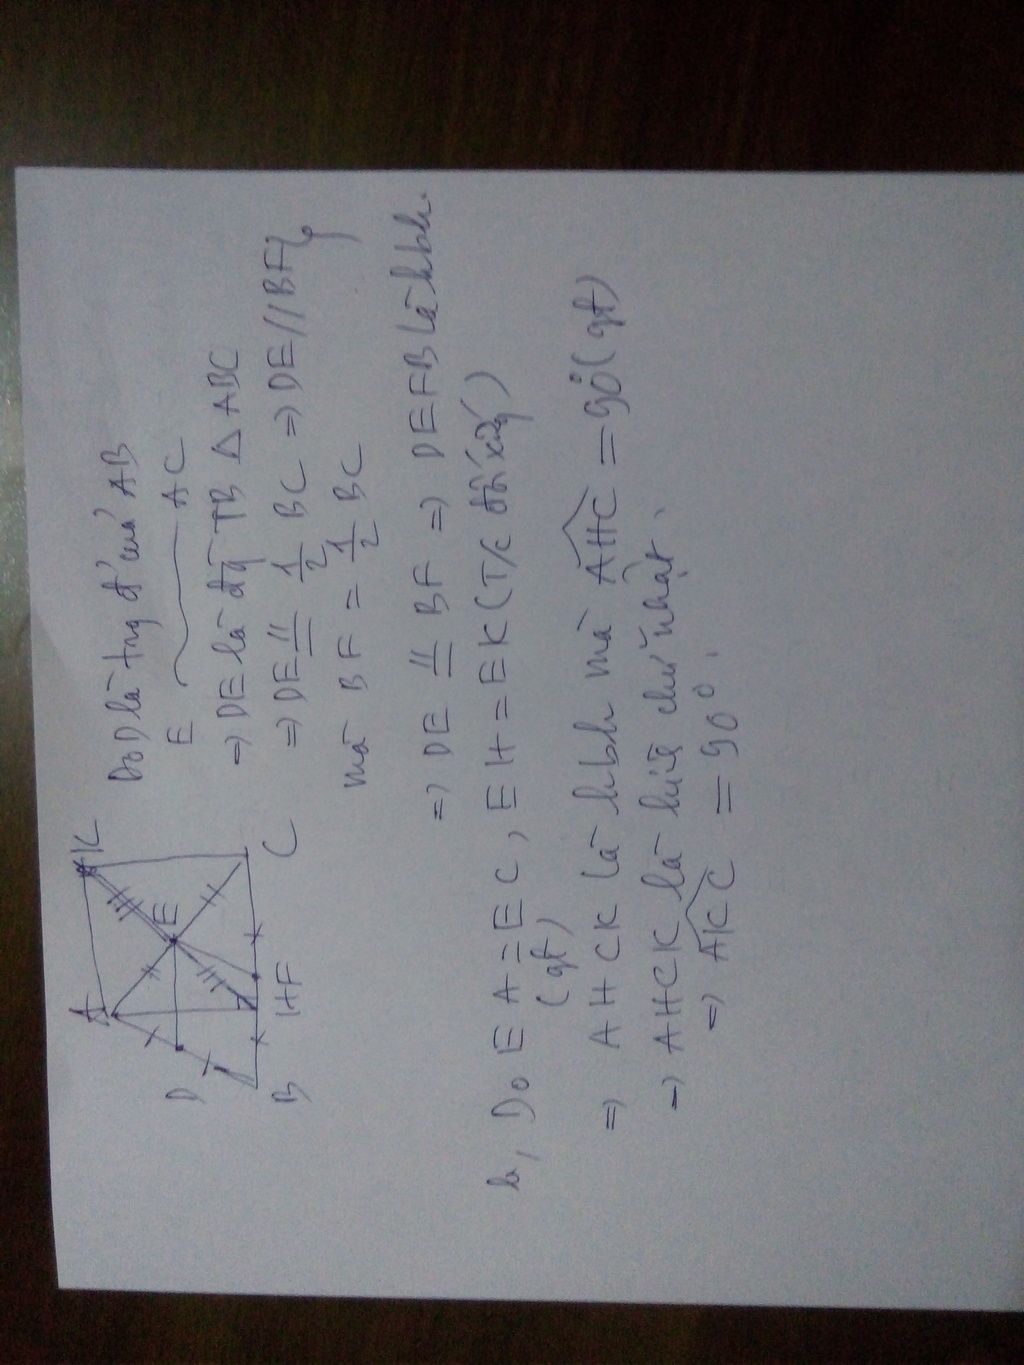 A K
D E
B H F C
Do D là trng đ' của AB
E ——— AC
=> DE là đg TB Δ ABC
=> DE // = 1/2 BC => DE // BF
mà BF = 1/2 BC
=> DE // = BF => DEFB là hbh.
b, Do EA = EC, EH = EK (T/c đối xứng)
(gt)
=> AHCK là hbh mà AHC = 90° (gt)
=> AHCK là hình chữ nhật.
=> AKC = 90°.